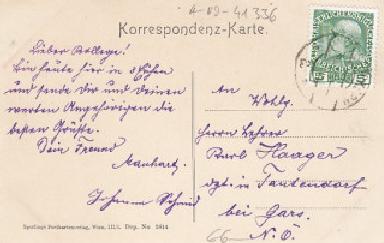 A-09-41336
Korrespondenz-Karte.
Lieber Kollege!
Bin heute hier in
und sende Dir und deinen
werten Angehörigen die
besten Grüße.
Dein Freund
Johann Schmid
An Wohlg.
Herrn Lehrer
Karl Haager
in Tautendorf
bei Gars.
N. Ö.
66
Wien, III/1. Dep. No 1814